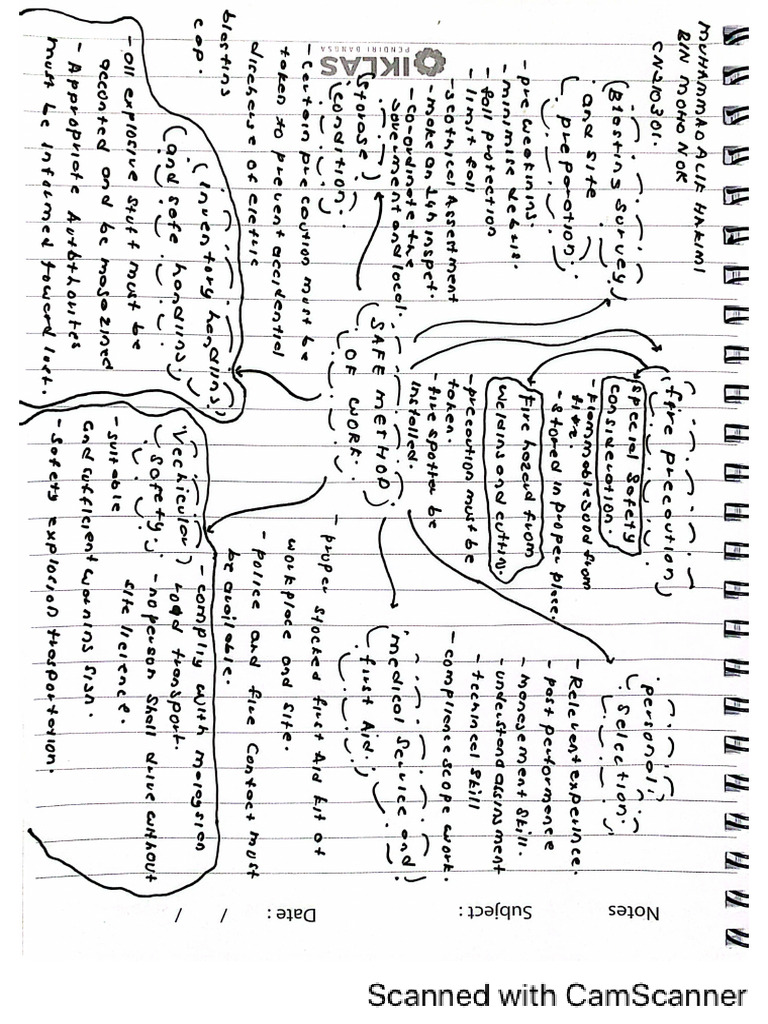 MUHAMMAD ALIF HAKIMI
BIN MOHD NOR
CN210301.
Blasting survey
and site
preparation.
- pre weakining.
- minimise debris.
- fall protection
- limit fall
- make an 24h inspet.
- co-ordinate the
goverment and local.
storage
condition.
- certain precaution must be
taken to prevent accidential
discharge of eletric
blasting
cap.
inventory handling
and safe handling.
- all explosive stuff must be
acconted and be magazined
- Appropriate Authborites
must be informed toward lost.
SAFE METHOD
OF WORK.
fire precaution
special safety
consideration.
- flammable good from
fire.
- stored in proper place.
fire hazard from
welding and cutting.
- precaution must be
taken.
- fire spotter be
installed.
personal
selection.
- Relevent experince.
- past performence
- management skill.
- understand assinment
- technicel skill
- complience scope work.
medical service and
first Aid.
- proper stocked first Aid kit at
workplace and site.
- police and fire contact must
be available.
Vechicular
safety.
- comply with malaysian
road transport.
- no person shall drive without
site licence.
- suitable
and sufficient warning sign.
- safety explosion trasportation.
Notes
Subject :
Date : / /
IKLAS
PENDIRI BANGSA
Scanned with CamScanner